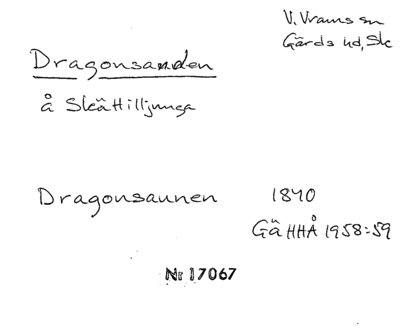 V. Vrams sn
Gärds hd, Sk
Dragonsanden
å Skättilljunga
Dragonsaunen 1840
GäHHÅ 1958:59
Nr 17067